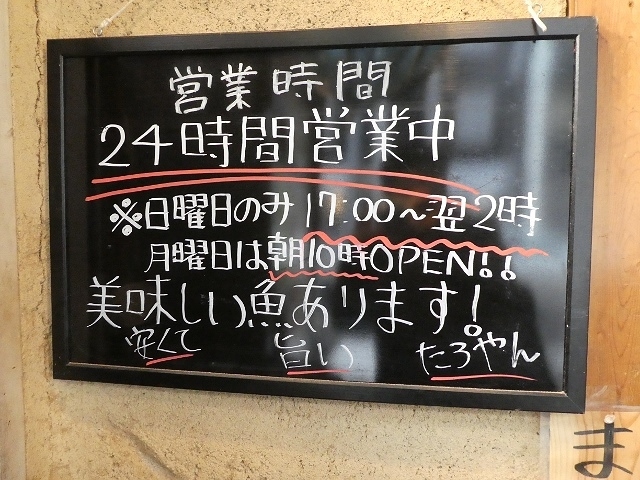 営業時間
24時間営業中
※日曜日のみ 17:00〜翌2時
月曜日は朝10時OPEN!!
美味しい魚あります!
安くて 旨い たろやん
ま